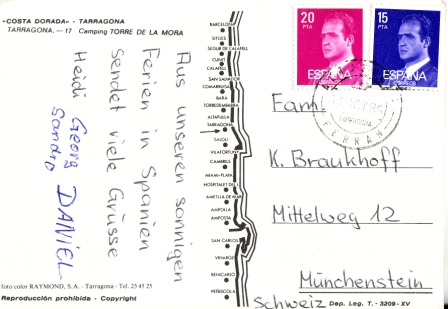 «COSTA DORADA» - TARRAGONA
TARRAGONA, — 17 Camping TORRE DE LA MORA
Aus unseren sonnigen
Ferien in Spanien
sendet viele Grüsse
Heidi Georg DANIEL
Sandro
foto color RAYMOND, S.A. - Tarragona - Tel. 23 45 25
Reproducción prohibida - Copyright
BARCELONA
SITGES
SEGUR DE CALAFELL
CUNIT
CALAFELL
SAN SALVADOR
COMARRUGA
BARA
TORREDEMBARRA
ALTAFULLA
TARRAGONA
SALOU
VILAFORTUNY
CAMBRILS
MIAMI-PLAYA
HOSPITALET DEL
AMETLLA DE MAR
AMPOLLA
AMPOSTA
SAN CARLOS
VINAROZ
BENICARLO
PEÑISCOLA
20
PTA
ESPAÑA
CORREOS
15
PTA
ESPAÑA
TARRAGONA
FERRAN
Faml
K. Braukhoff
Mittelweg 12
Münchenstein
Schweiz
Dep. Leg. T. - 3209 - XV